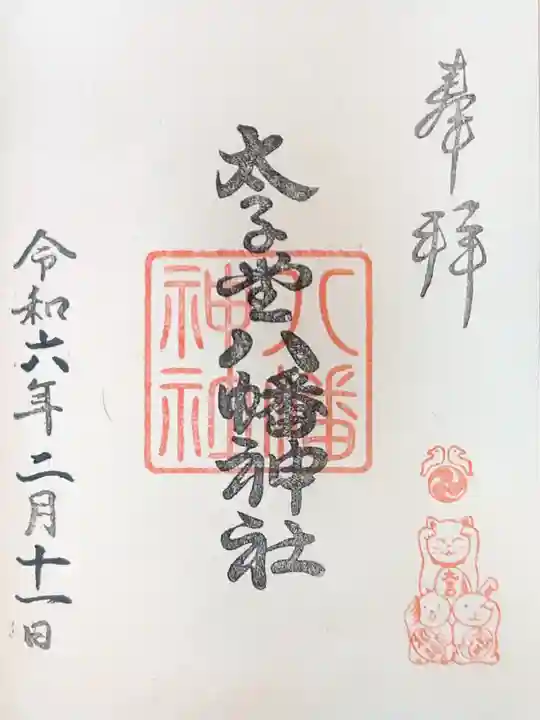 奉拝
太子堂八幡神社
八幡
神社
令和六年二月十一日